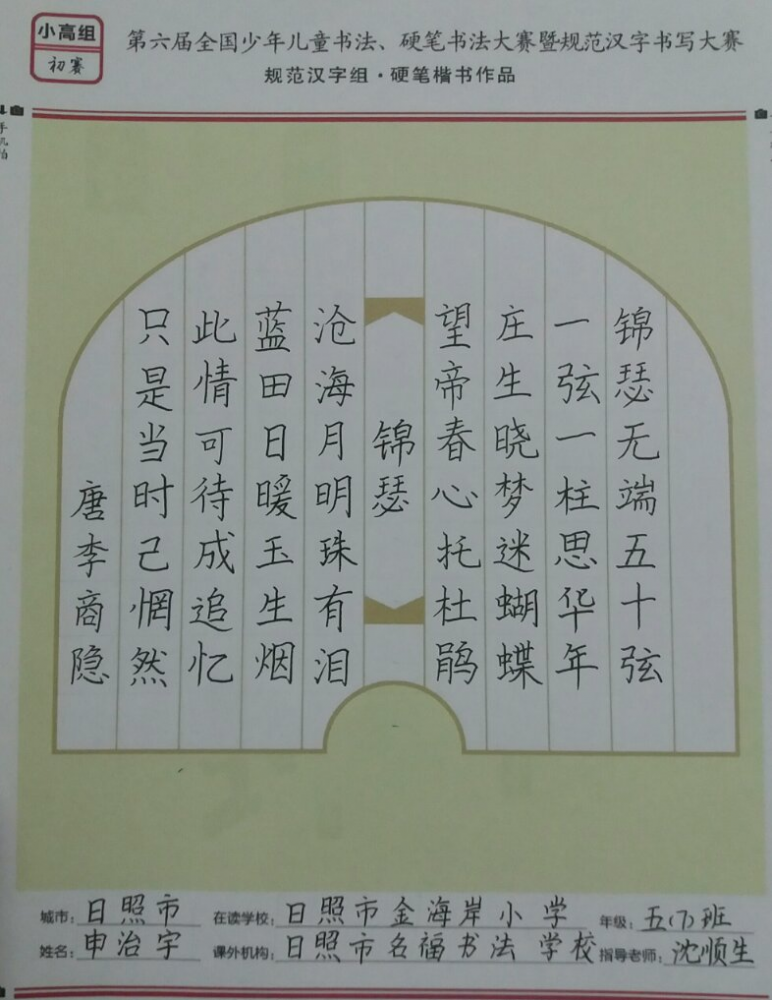 小高组
初赛
第六届全国少年儿童书法、硬笔书法大赛暨规范汉字书写大赛
规范汉字组·硬笔楷书作品
锦瑟无端五十弦
一弦一柱思华年
庄生晓梦迷蝴蝶
望帝春心托杜鹃
锦瑟
沧海月明珠有泪
蓝田日暖玉生烟
此情可待成追忆
只是当时己惘然
唐李商隐
城市：日照市 在读学校：日照市金海岸小学 年级：五（7）班
姓名：申治宇 课外机构：日照市名福书法学校 指导老师：沈顺生